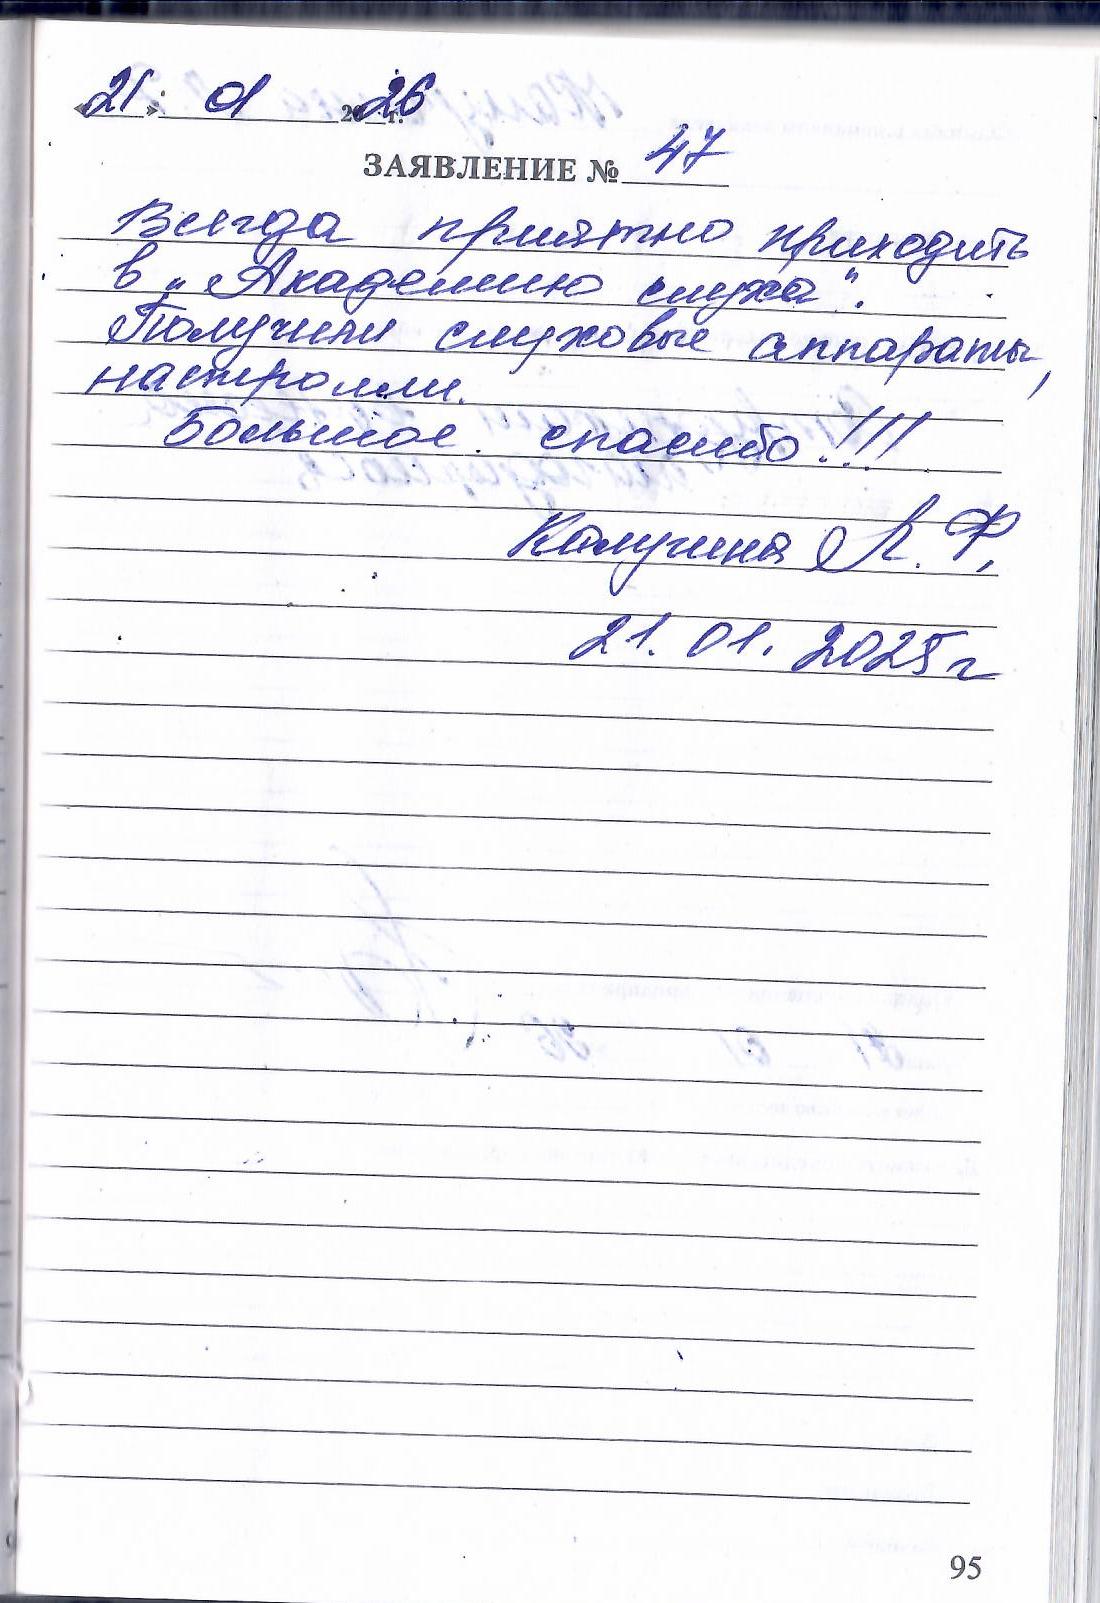 «21» 01 2026 г.
ЗАЯВЛЕНИЕ № 47
Всегда приятно приходить
в „Академию слуха".
Получили слуховые аппараты,
настроили.
Большое спасибо!!!
Калугина Л. Ф.
21. 01. 2025 г
95